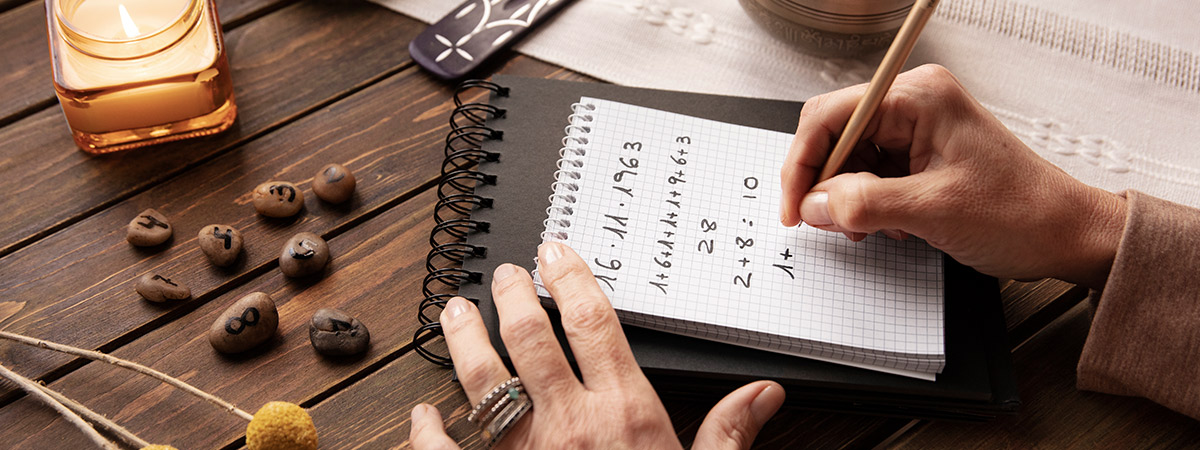 16·11·1963
1+6+1+1+1+9+6+3
28
2+8= 10
1+
3
4
8